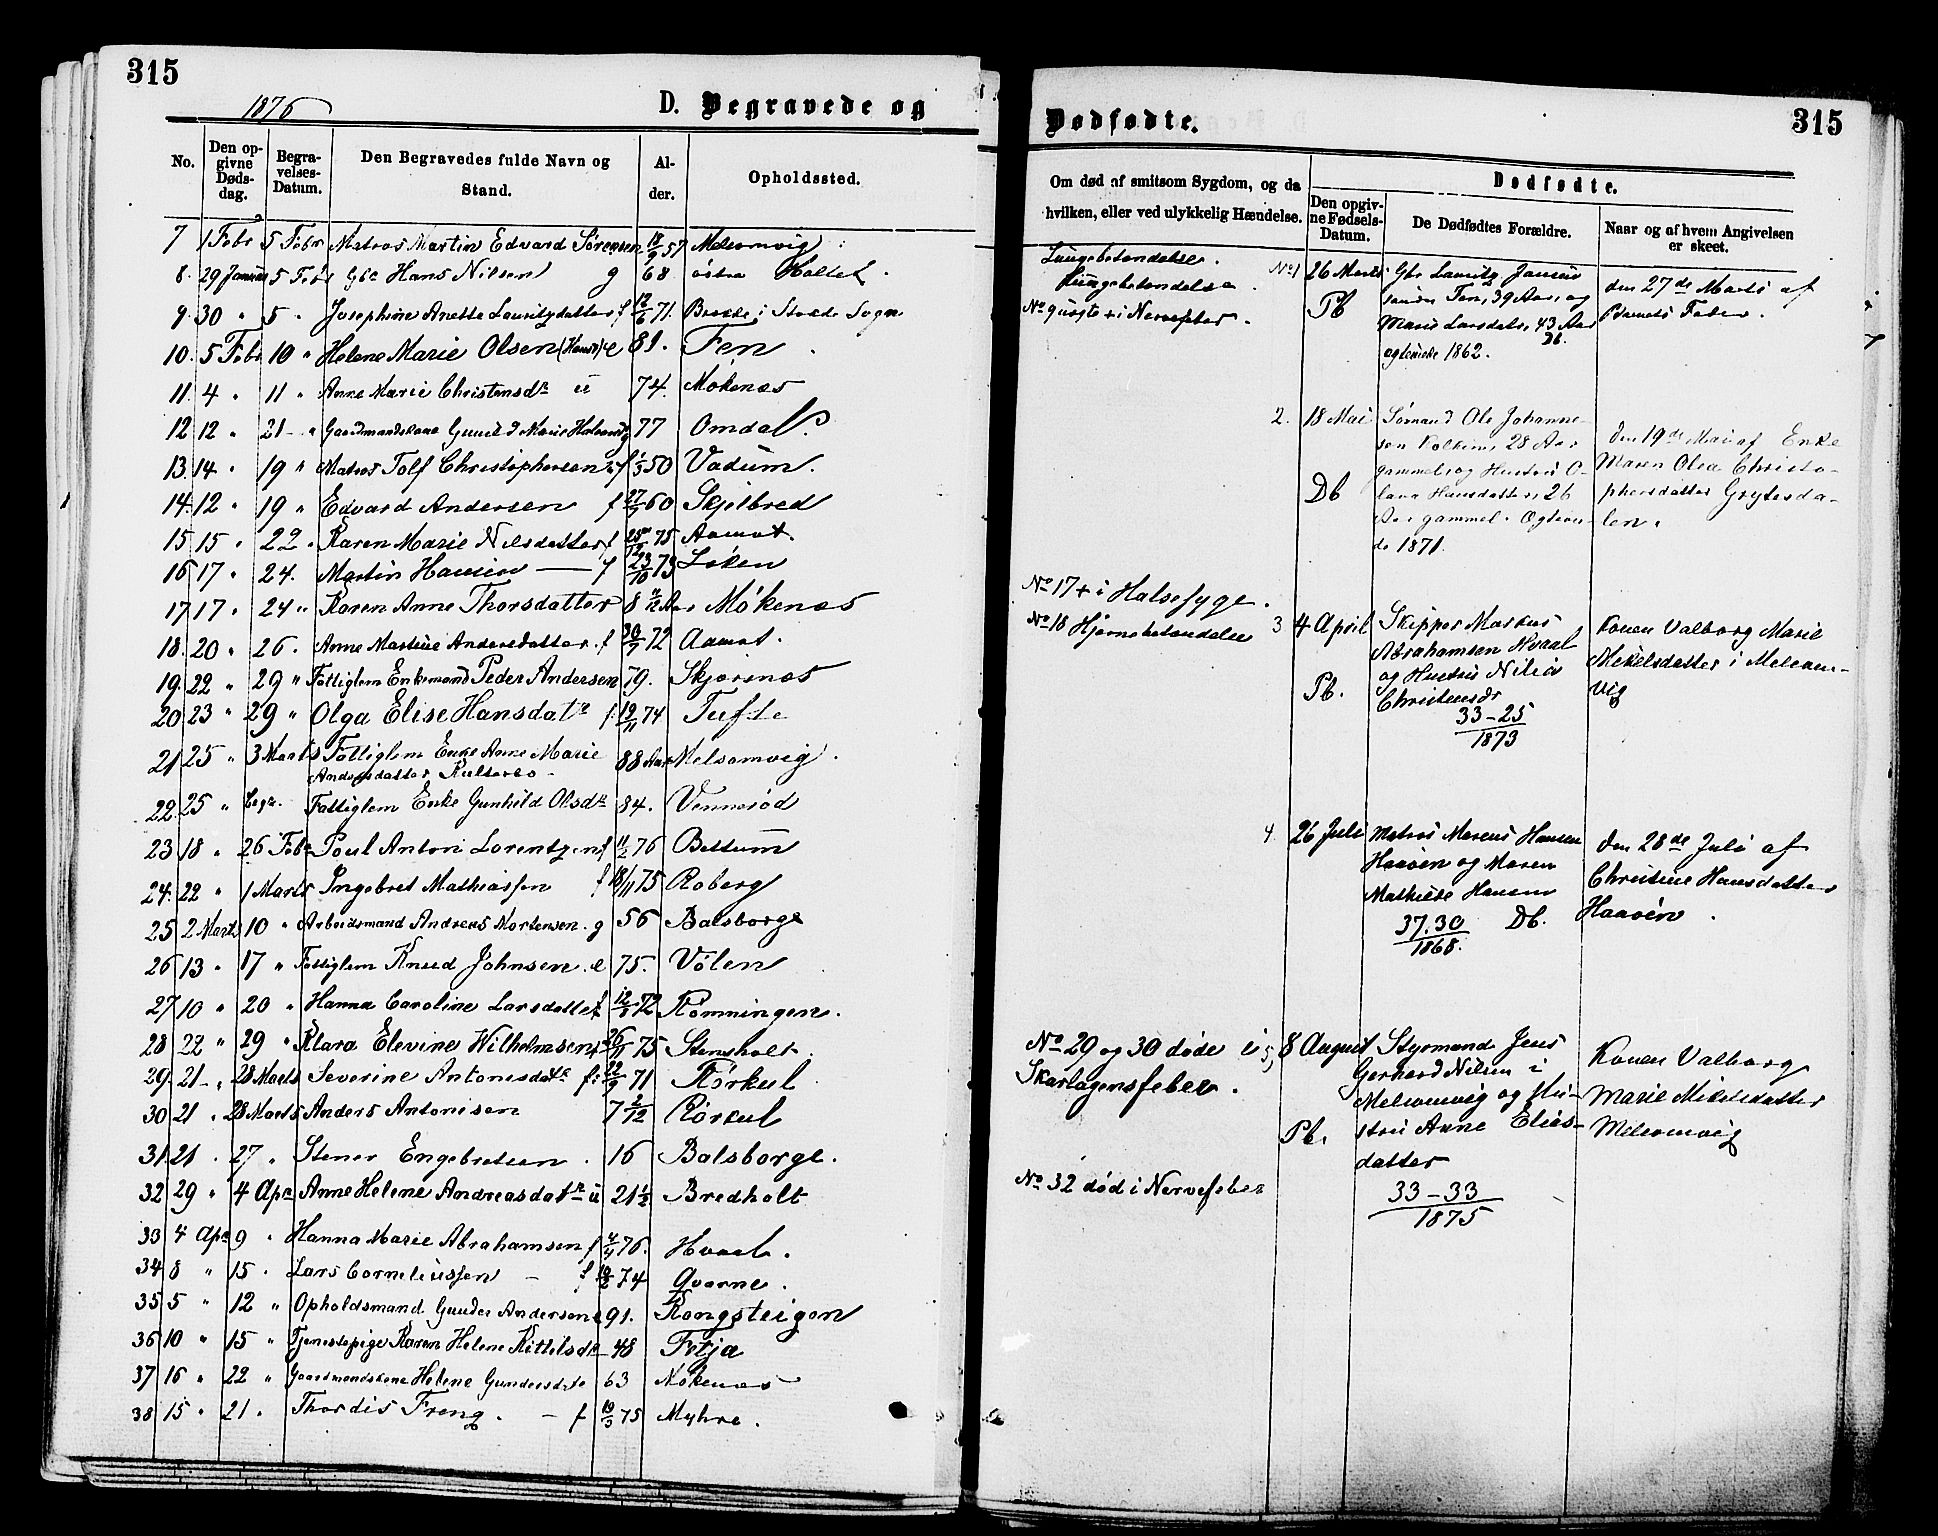 315
1876
D. Begravede og
No.
Den opgivne Dødsdag.
Begravelses-Datum.
Den Begravedes fulde Navn og Stand.
Alder.
Opholdssted.
7 1 Febr 5 Febr Matros Martin Edvard Sørensen 57 Melsomvig
8. 29 Januar 5 Febr Gbr Hans Nilsen g 68. østre Holtet.
9. 30 " 5 " Josephine Anette Lauritzdatter f 71. Brekke i Stokke Sogn
10. 5 Febr 10 " Helene Marie Olsen e 81. Fen
11. 4 " 11 " Anne Marie Christensdr u 74. Mokenæs
12 12 " 21 " Gaardmandskone Gunild Marie 77 Omdal.
13. 14 " 19 " Matros Tolf Christophersen f 50 Vadum.
14. 12 " 19 " Edvard Andersen f 27/7 60 Skjelbred
15 15 " 22 " Karen Marie Nilsdatter f 75 Aamot.
16 17 " 24. Martin Hansen — f 23/10 73 Løken
17. 17 " 24 " Karen Anne Thorsdatter 8 Aar Møkenæs
18. 20 " 26. Anne Martine Andersdatter. f 30/7 72 Aamot.
19. 22 " 29 " Fattiglem Enkemand Peder Andersen 79. Skjærsnæs
20 23 " 29 " Olga Elise Hansdatr f. 19/11 74 Tufte
21 25 " 3 Marts Fattiglem Enke Anne Marie
Andersdatter 88 Aar Melsomvig.
22. 25 " Begr. Fattiglem Enke Gunhild Olsdr 84. Vennerød
23 18 " 26 Febr Poul Anton Lorentzen f 11/2 76 Bettum
24. 22 " 1 Marts Ingebret Mathiassen f 18/11 75 Roberg
25 2 Marts 10 " Arbeidsmand Andreas Mortensen. g 56 Balsborge
26 13 " 17 " Fattiglem Knud Johnsen. e 75. Vølen
27 10 " 20 " Hanna Caroline Larsdatter f 72 Rømningen.
28 22 " 29 " Klara Elevine Wilhelmsen f 26/11 75 Stensholt.
29. 21 " 28 Marts Severine Antonisdatr f: 71 Rørkul
30 21 " 28 Marts Anders Antonisen 7 2/12 Rørkul
31. 21 " 27 " Stener Engebretsen. 16 Balsborge.
32 29 " 4 Apr Anne Helene Andreasdatr u 21 1/2 Bredholt
33 4 Apr 9 " Hanna Marie Abrahamsen f 4/4 76. Hvaal.
34 8 " 15 " Lars Corneliussen — f 74 Qvarne.
35 5 " 12 " Opholdsmand Gunder Andersen e 91. Rongsteigen
36 10 " 15 " Tjenestepige Karen Helene Kittelsdr — 48 Fetja
37 16 " 22 " Gaardmandskone Helene Gundersdr 63 Nøkenæs
38 15 " 21 " Thordis Freng. — f 19/3 75 Myhre.
315
Dødfødte.
Om død af smitsom Sygdom, og da hvilken, eller ved ulykkelig Hændelse.
Dødfødte.
Den opgivne Fødsels-Datum.
De Dødfødtes Forældre.
Naar og af hvem Angivelsen er skeet.
Lungebetændelse.
Lungebetændelse.
No 9 i Nervefeber.
No 17 + i Halsesyge.
No 18 Hjernebetændelse
No 29 og 30 døde i
Skarlagensfeber.
No 32 død i Nervefeber
No 1 26 Marts Pb
Gbr Lauritz
Fen, 39 Aar, og
Marie Larsdatr, 43 Aar
ægteviede 1862.
den 27de Marts af
Barnets Fader.
2. 18 Mai Db
Sømand Ole Johannesen
28 Aar
gammel og Hustru O-
lava Hansdatter, 26
Aar gammel. Ægtevi-
de 1871.
Den 19de Mai af Enke
Maren Olea Christo-
phersdatter Grytesda-
len.
3 4 April Pb.
Skipper Markus
Abrahamsen Hvaal
og Hustru Nilia
Christensdr
33 - 25
1873
Konen Valborg Marie
Mikelsdatter i Melsom-
vig
4. 26 Juli
Matros Marcus Hansen
Haaøen og Maren
Mathilde Hansen
37. 30 Db.
1868.
Den 28de Juli af
Christine Hansdatter
Haaøen.
5 8 August Pb.
Styrmand Jens
Gerhard Nilsen i
Melsomvig og Hu-
stru Anne Elias-
datter
33 - 33
1875
Konen Valborg
Marie Mikelsdatter
Melsomvig